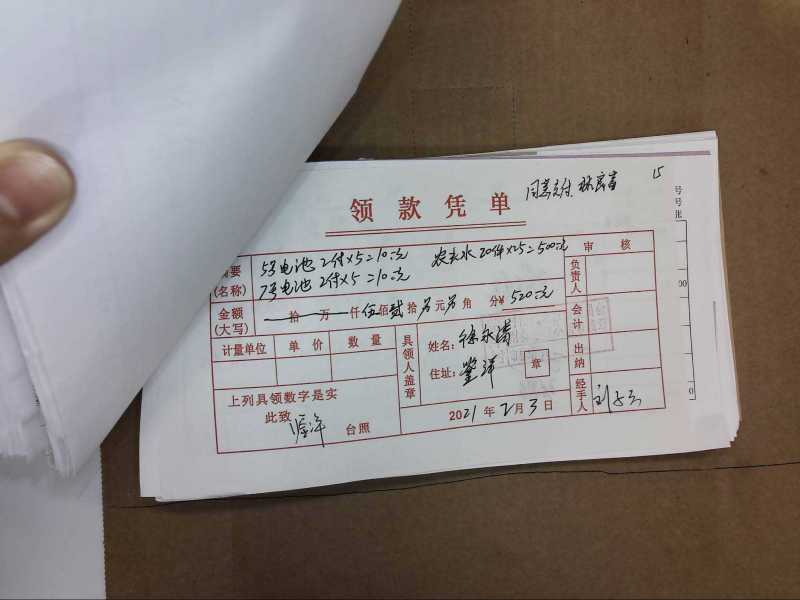 同意支付 15
领款凭单
摘要 5号电池 2付×5=10.元 农夫水 20件×25=500.元
(名称) 7号电池 2付×5=10.元
审核
负责人
金额 拾万仟伍佰贰拾另元另角 分¥ 520.元
(大写)
会计
计量单位 单价 数量
具领人盖章 姓名: 徐永清
住址: 鉴洋 章
出纳
上列具领数字是实
此致
台照
2021年2月3日
经手人 刘
号
号
张
00
0